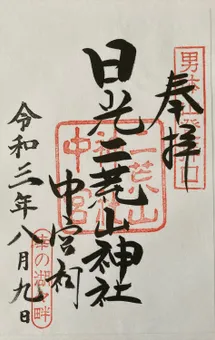 奉拝
男体山登拝口
日光二荒山神社
中宮祠
二荒山
中宮祠
令和三年八月九日
幸の湖畔